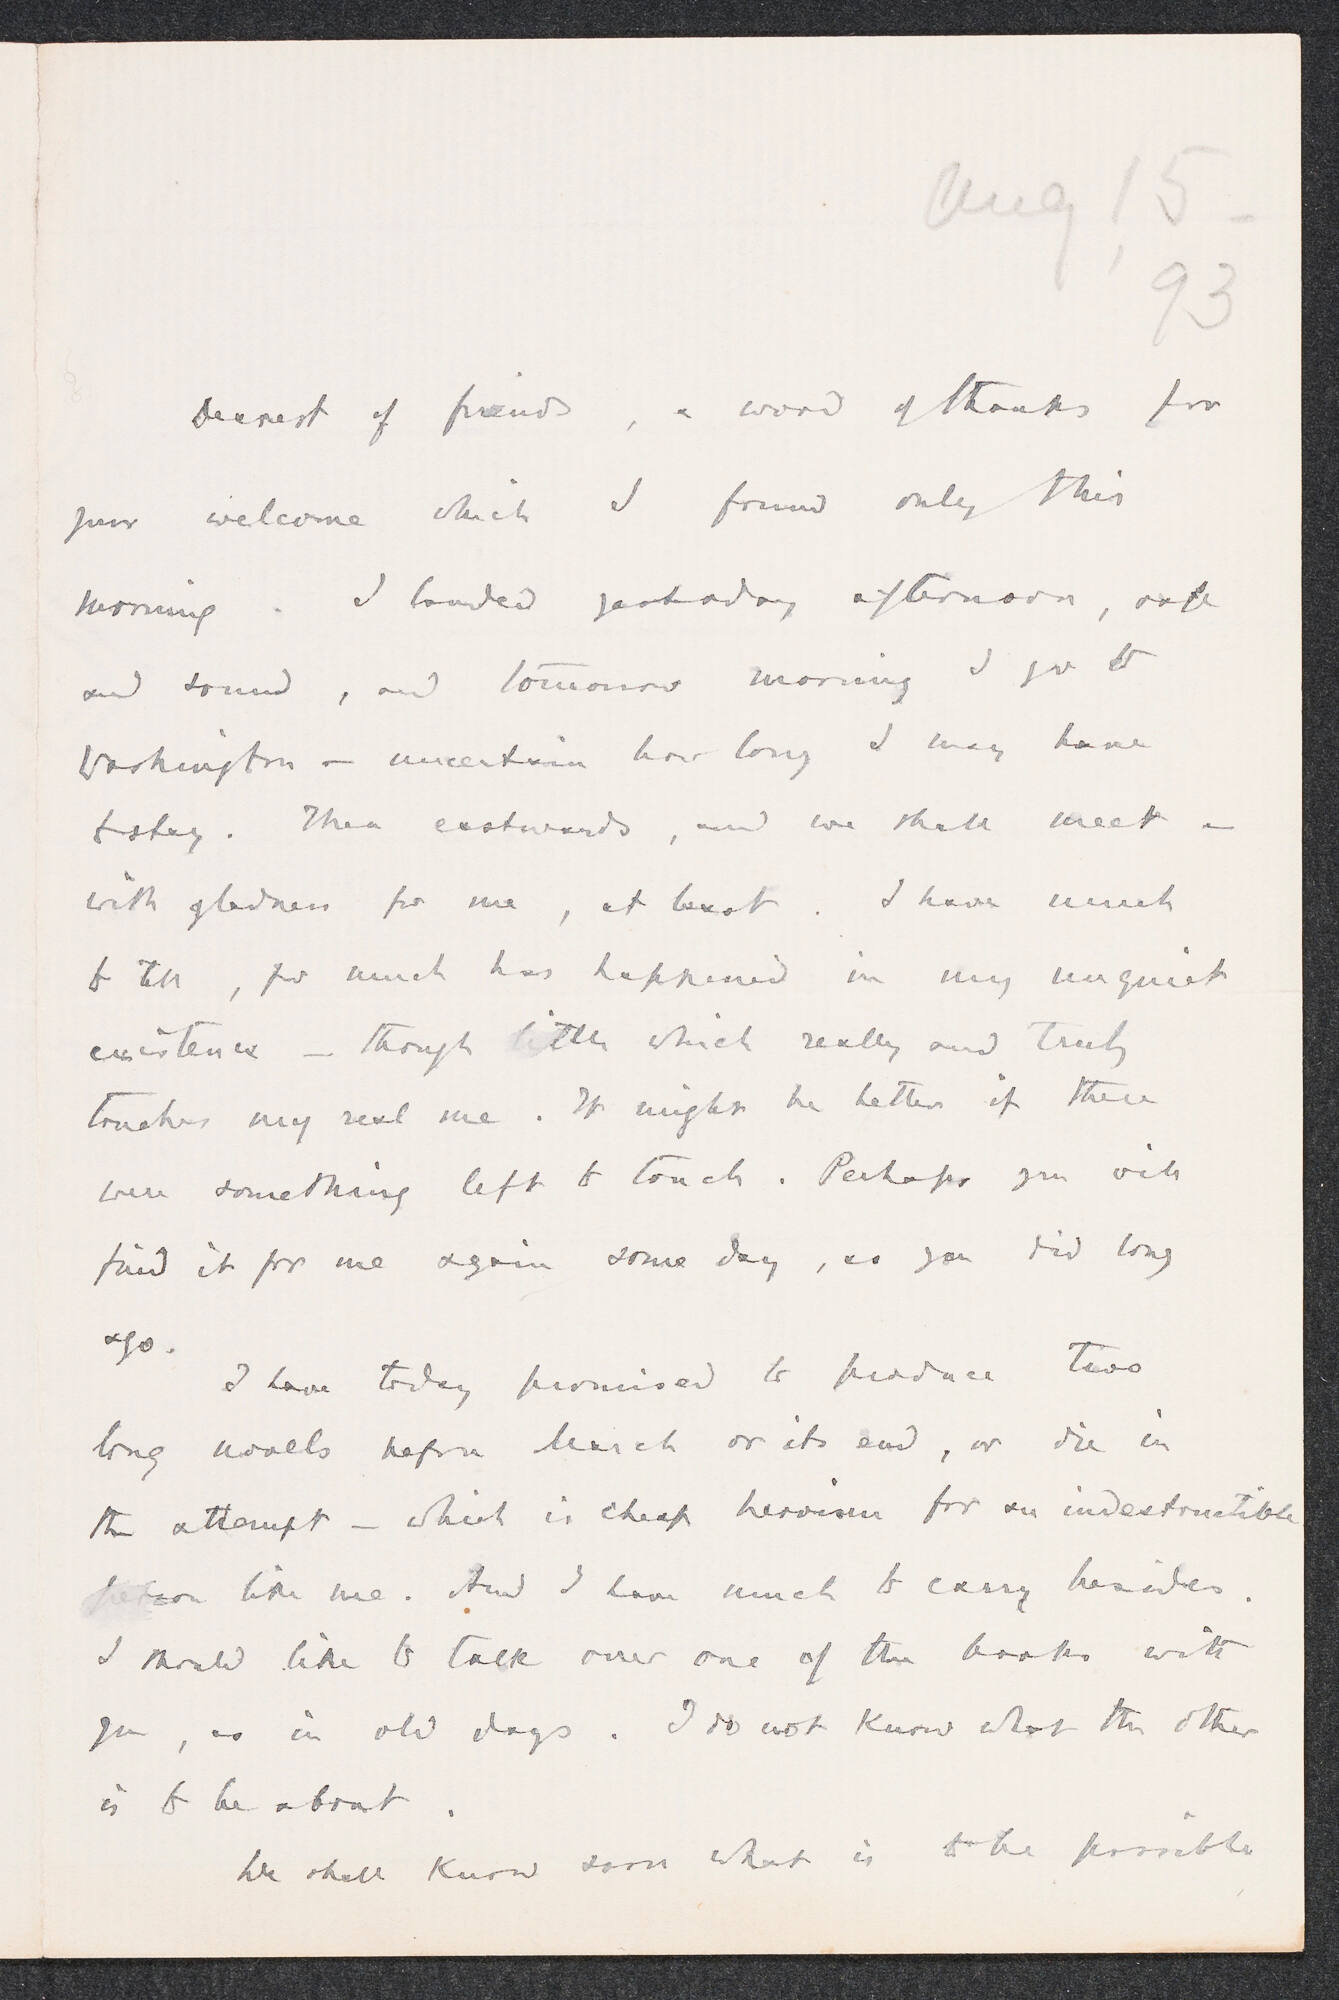 Aug, 15 -
93
Dearest of friends, a word of thanks for
your welcome which I found only this
morning. I landed yesterday afternoon, safe
and sound, and tomorrow morning I go to
Washington – uncertain how long I may have
to stay. Then eastwards, and we shall meet –
with gladness for me, at least. I have much
to tell, for much has happened in my unquiet
existence – though little which really and truly
touches my real me. It might be better if there
were something left to touch. Perhaps you will
find it for me again some day, as you did long
ago.
I have today promised to produce two
long novels before March or its end, or die in
the attempt – which is cheap heroism for an indestructible
person like me. And I have much to carry besides.
I should like to talk over one of the books with
you, as in old days. I do not know what the other
is to be about.
We shall know soon what is to be possible